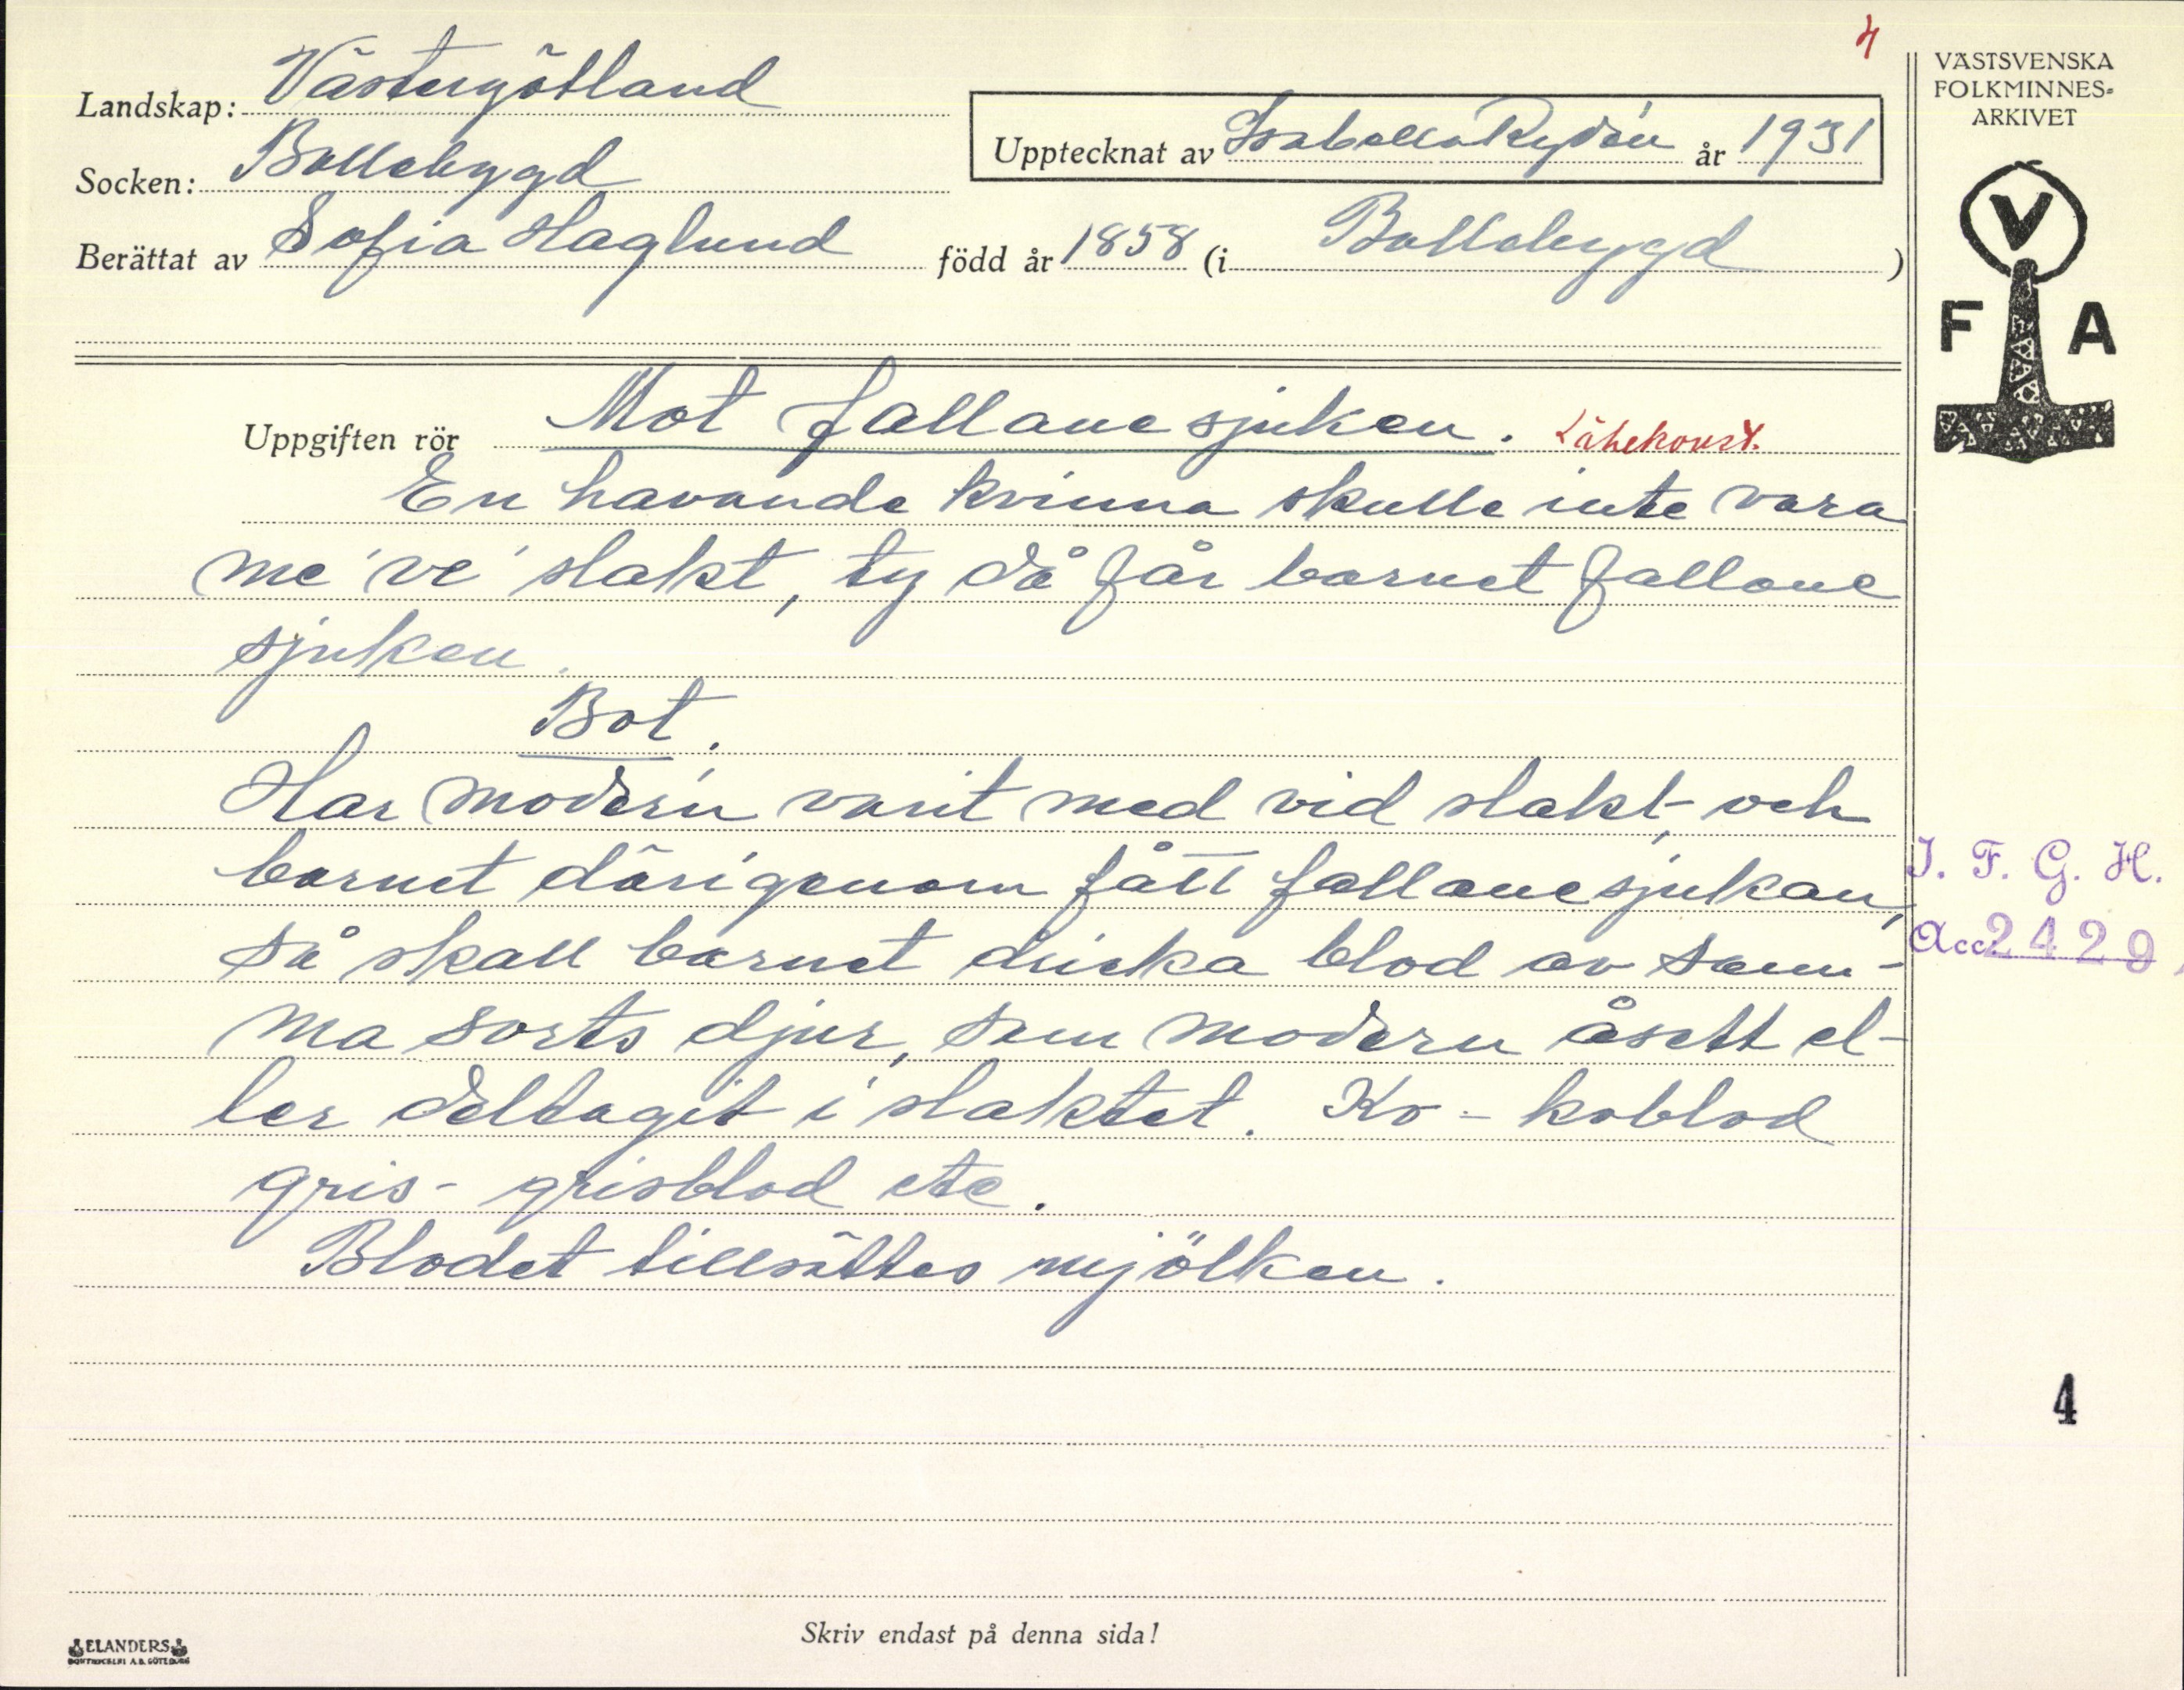 4
Landskap: Västergötland
Socken: Bollebygd
Upptecknat av Isabella Rydén år 1931
Berättat av Sofia Haglund född år 1858 (i Bollebygd)
VÄSTSVENSKA
FOLKMINNES-
ARKIVET
V
F A
Uppgiften rör Mot fallanesjuken. Läkekonst.
En havande kvinna skulle inte vara
me' ve' slakt, ty då får barnet fallane
sjuken.
Bot.
Har modern varit med vid slakt, och
barnet därigenom fått fallanesjukan,
så skall barnet dricka blod av sam-
ma sorts djur, som modern åsett el-
ler deltagit i slaktet. Ko - koblod
gris - grisblod etc.
Blodet tillsättes mjölken.
I. F. G. H.
Acc 2429
4
Skriv endast på denna sida!
ELANDERS